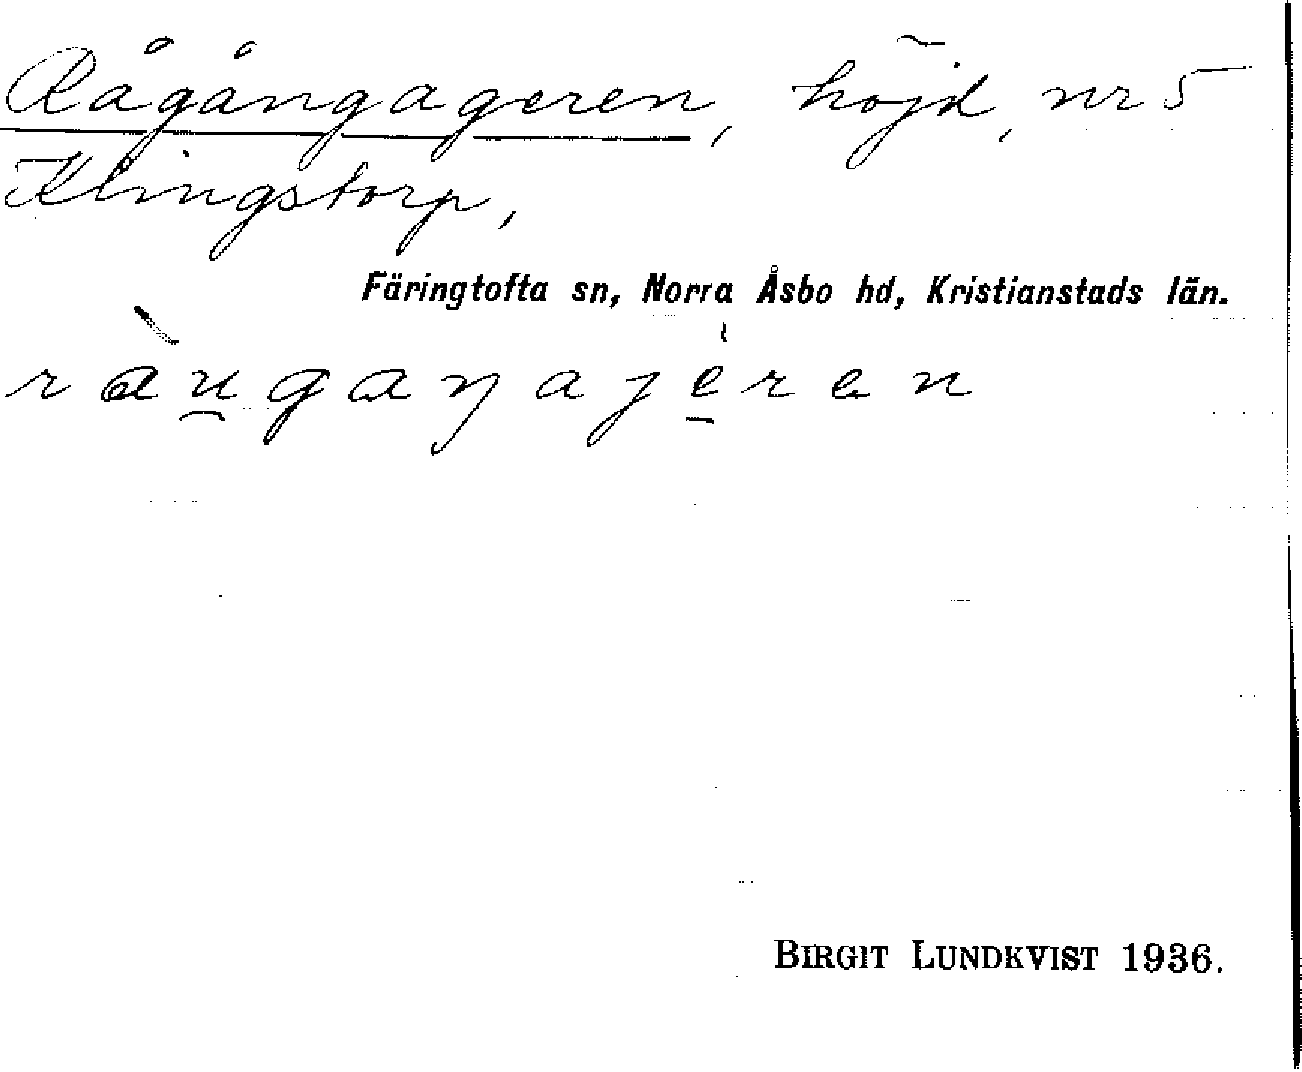 Rågångageren, höjd, nr 5
Klingstorp,
Färingtofta sn, Norra Åsbo hd, Kristianstads län.
ràu̯gaŋaje̯ren
BIRGIT LUNDKVIST 1936.